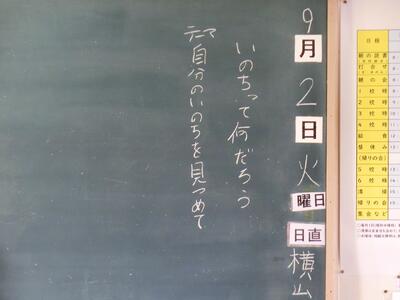 9月2日火曜日
日直 横山
いのちって何だろう
テーマ 自分のいのちを見つめて
日程
朝の読書
打合せ
朝の会
1校時
2校時
3校時
4校時
給食
昼休み
(帰りの会)
5校時
6校時
清掃
帰りの会
集会など